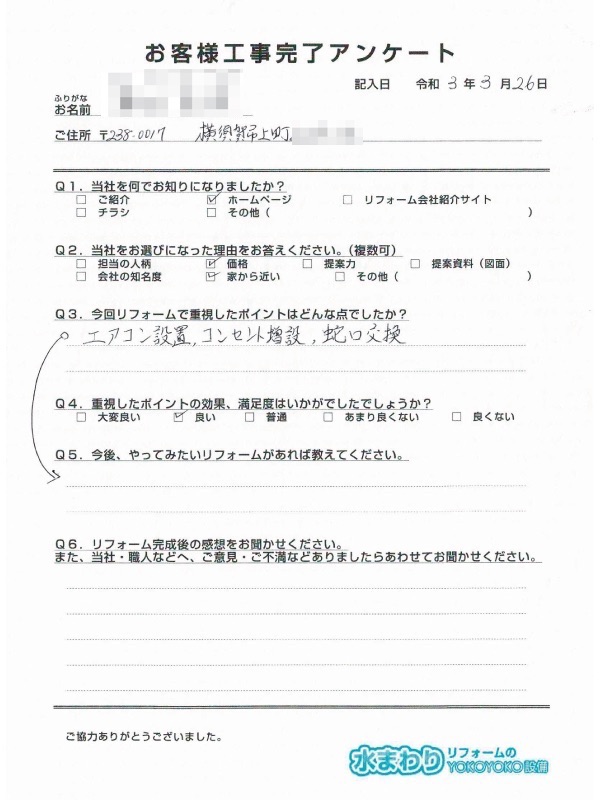 お客様工事完了アンケート
記入日 令和 3 年 3 月 26 日
ふりがな
お名前
ご住所 〒238-0017 横須賀市上町
Q1．当社を何でお知りになりましたか？
□ ご紹介 ☑ ホームページ □ リフォーム会社紹介サイト
□ チラシ □ その他（ ）
Q2．当社をお選びになった理由をお答えください。（複数可）
□ 担当の人柄 ☑ 価格 □ 提案力 □ 提案資料（図面）
□ 会社の知名度 ☑ 家から近い □ その他（ ）
Q3．今回リフォームで重視したポイントはどんな点でしたか？
エアコン設置，コンセント増設，蛇口交換
Q4．重視したポイントの効果、満足度はいかがでしたでしょうか？
□ 大変良い ☑ 良い □ 普通 □ あまり良くない □ 良くない
Q5．今後、やってみたいリフォームがあれば教えてください。
Q6．リフォーム完成後の感想をお聞かせください。
また、当社・職人などへ、ご意見・ご不満などありましたらあわせてお聞かせください。
ご協力ありがとうございました。
水まわり リフォームの
YOKOYOKO設備